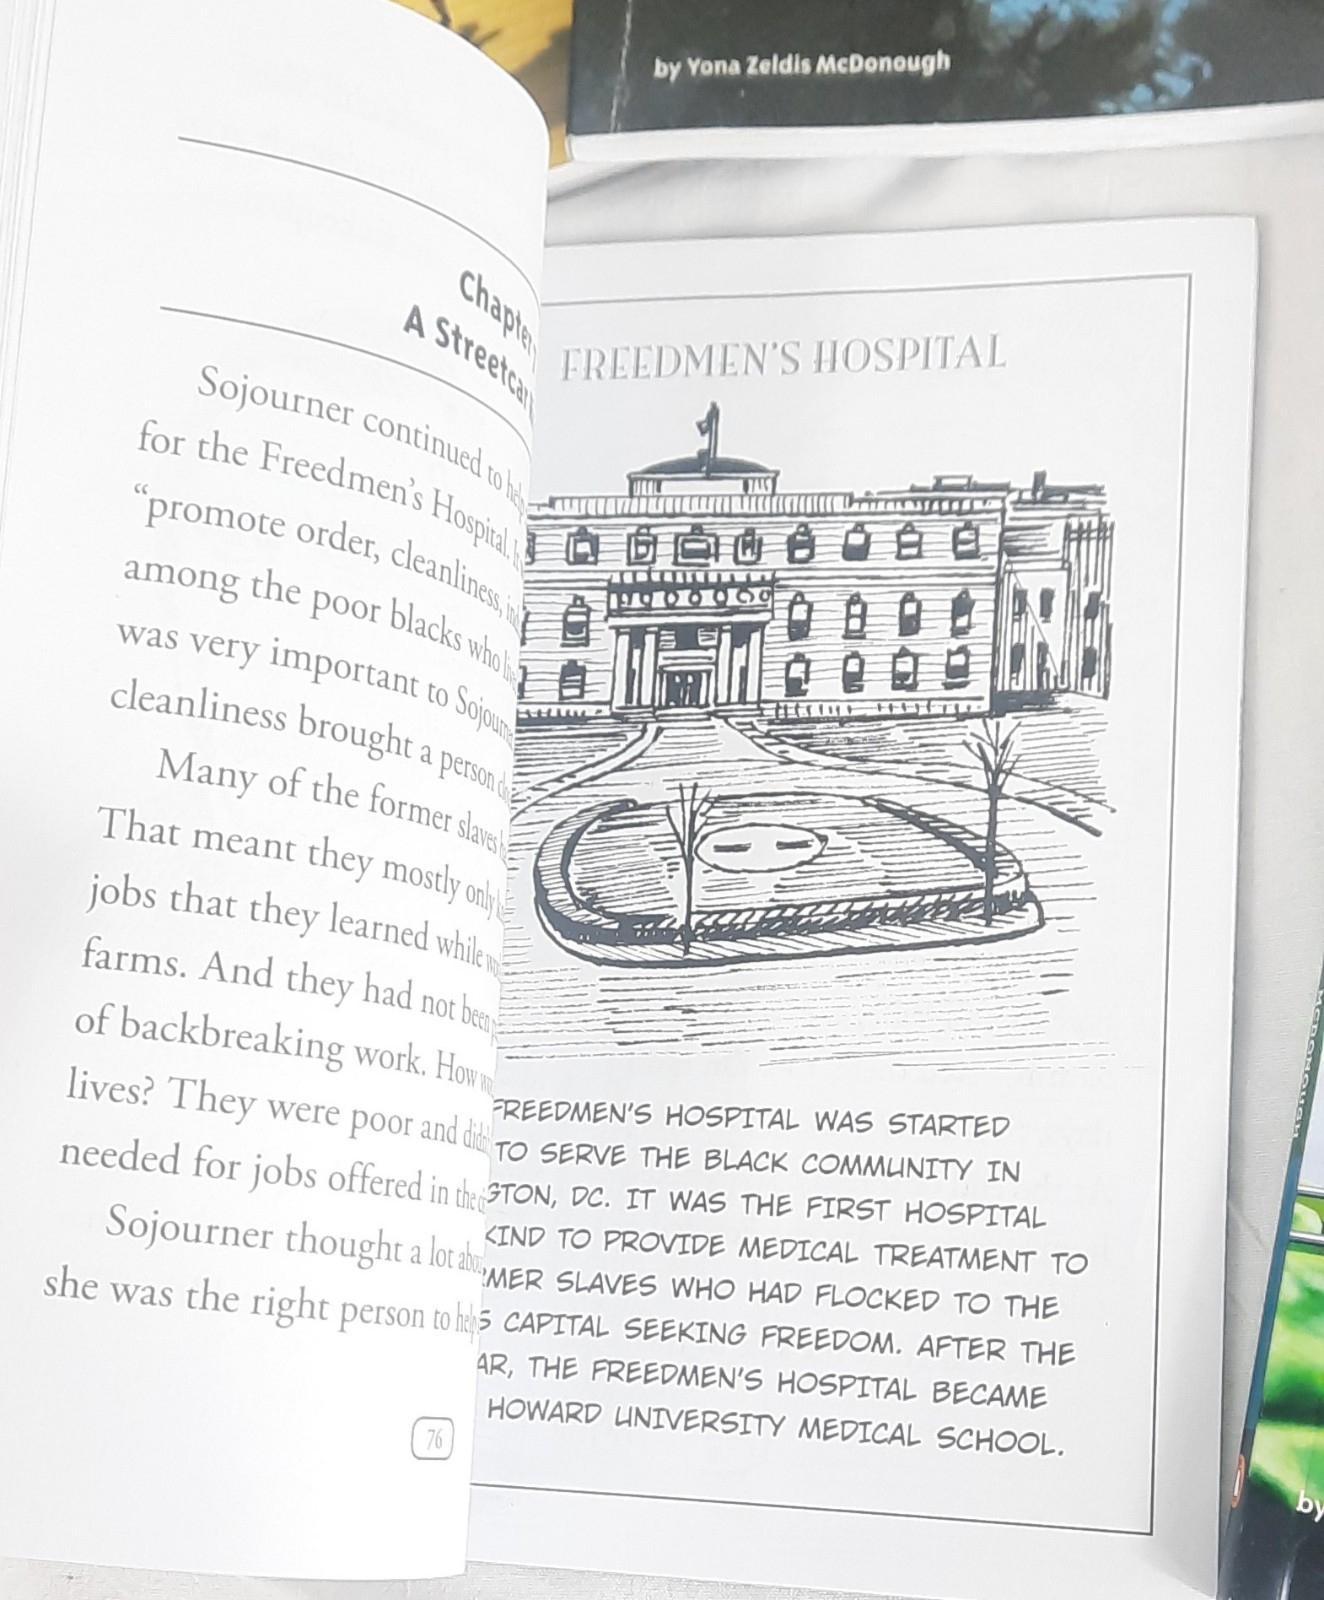 by Yona Zeldis McDonough
Chapter
A Streetcar
Sojourner continued to
for the Freedmen's Hospital.
"promote order, cleanliness,
among the poor blacks who
was very important to
cleanliness brought a person
Many of the former slaves
That meant they mostly only
jobs that they learned while
farms. And they had not been
of backbreaking work. How
lives? They were poor and
needed for jobs offered in the
Sojourner thought a lot
she was the right person to
76
FREEDMEN'S HOSPITAL
FREEDMEN'S HOSPITAL WAS STARTED
TO SERVE THE BLACK COMMUNITY IN
GTON, DC. IT WAS THE FIRST HOSPITAL
KIND TO PROVIDE MEDICAL TREATMENT TO
MER SLAVES WHO HAD FLOCKED TO THE
S CAPITAL SEEKING FREEDOM. AFTER THE
AR, THE FREEDMEN'S HOSPITAL BECAME
HOWARD UNIVERSITY MEDICAL SCHOOL.
MCDONOUGH
by